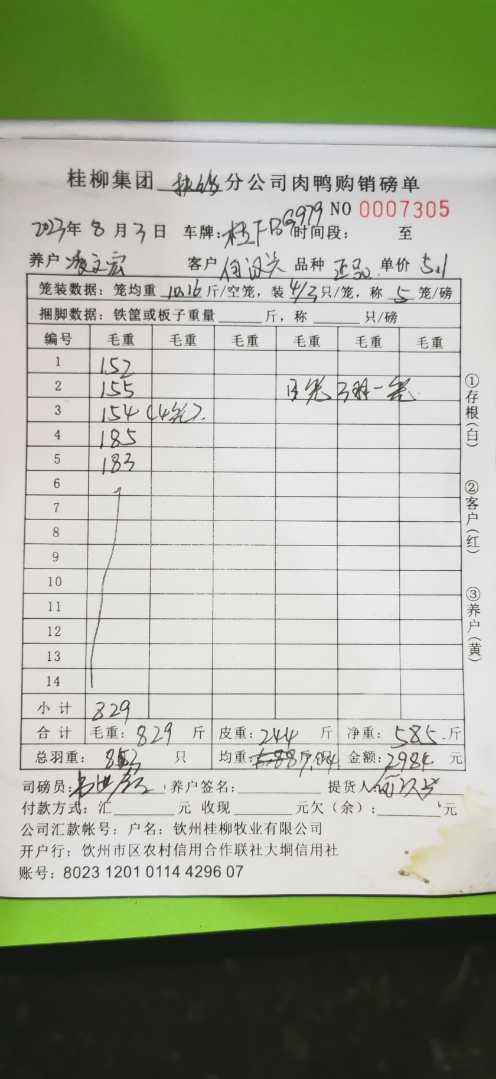 桂柳集团 分公司肉鸭购销磅单
2023年 8 月 3 日 车牌: G979 时间段: 至 NO 0007305
养户 宏 客户 品种 正品 单价 5.1
笼装数据: 笼均重 10.16 斤/空笼, 装 4/3 只/笼, 称 5 笼/磅
捆脚数据: 铁筐或板子重量 斤, 称 只/磅
编号 毛重 毛重 毛重 毛重 毛重 毛重
1 152
2 155
3 154 (4笼)
4 185
5 183
6
7
8
9
10
11
12
13
14
小 计 829
合 计 毛重: 829 斤 皮重: 244 斤 净重: 585 斤
总羽重: 只 均重: 金额: 2984 元
司磅员: 养户签名: 提货人
付款方式: 汇 元 收现 元欠(余): 元
公司汇款帐号: 户名: 钦州桂柳牧业有限公司
开户行: 钦州市区农村信用合作联社大垌信用社
账号: 8023 1201 0114 4296 07
①存根(白)
②客户(红)
③养户(黄)